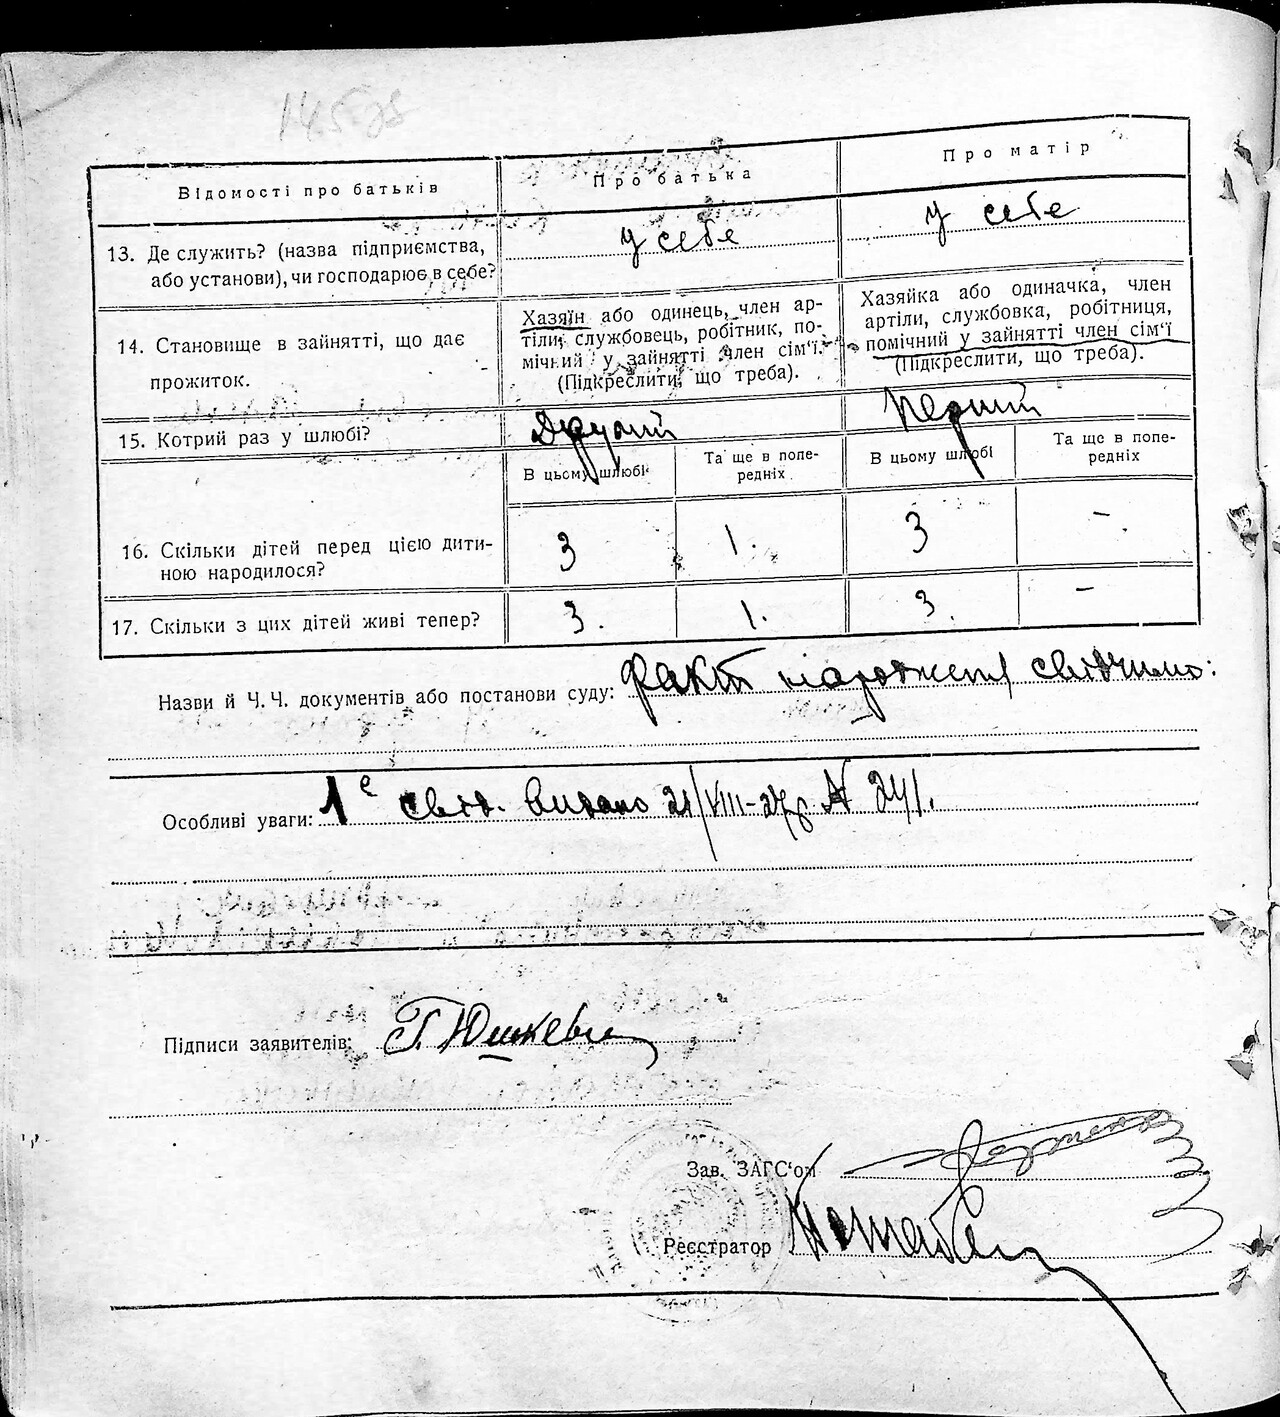 Відомості про батьків
Про батька
Про матір
13. Де служить? (назва підприємства, або установи), чи господарює в себе?
у себе
у себе
14. Становище в зайнятті, що дає прожиток.
Хазяїн або одинець, член ар-
тіли, службовець, робітник, по-
мічний у зайнятті член сім'ї.
(Підкреслити, що треба).
Хазяйка або одиначка, член
артіли, службовка, робітниця,
помічний у зайнятті член сім'ї
(Підкреслити, що треба).
15. Котрий раз у шлюбі?
Другий
Перший
В цьому шлюбі
Та ще в попе-
редніх
В цьому шлюбі
Та ще в попе-
редніх
16. Скільки дітей перед цією дити-
ною народилося?
3
1.
3
-
17. Скільки з цих дітей живі тепер?
3.
1.
3.
-
Назви й Ч. Ч. документів або постанови суду: факт народження свідчимо:
Особливі уваги: 1е свід. видано 21/VIII-27р № 241.
Підписи заявителів: Г. Юшкевич
Зав. ЗАГС'ом
Реєстратор